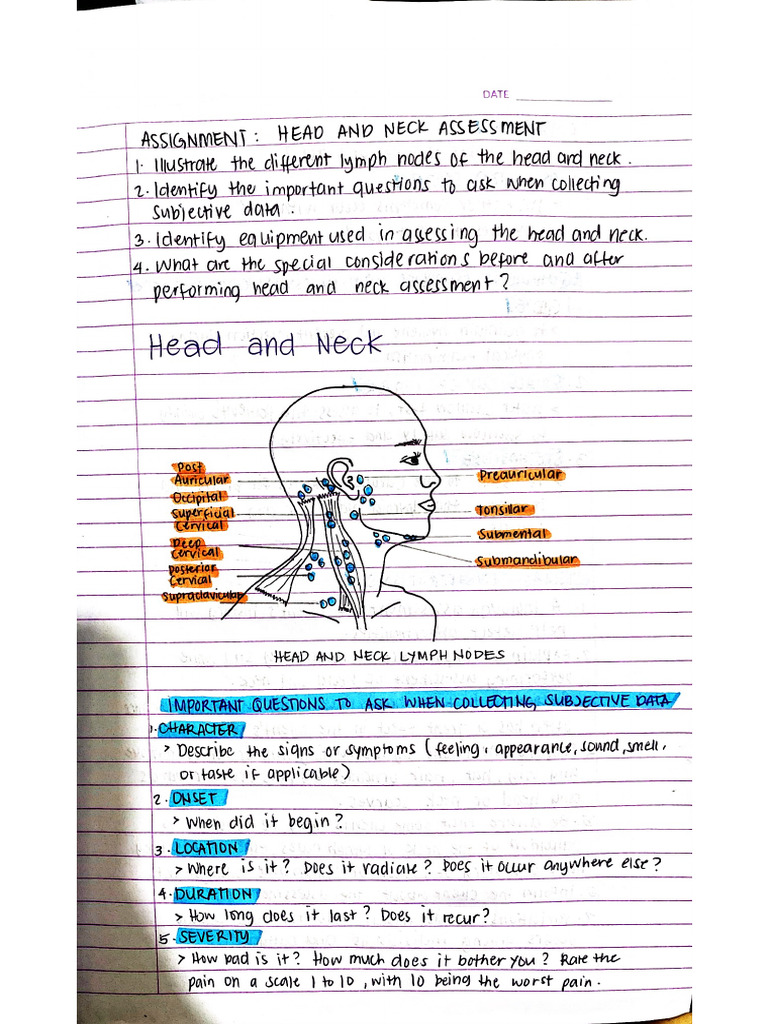 DATE
ASSIGNMENT: HEAD AND NECK ASSESSMENT
1. Illustrate the different lymph nodes of the head and neck.
2. Identify the important questions to ask when collecting
subjective data.
3. Identify equipment used in assessing the head and neck.
4. What are the special considerations before and after
performing head and neck assessment?
Head and Neck
Post
Auricular
Occipital
Superficial
Cervical
Deep
Cervical
Posterior
Cervical
Supraclavicular
Preauricular
Tonsillar
Submental
Submandibular
HEAD AND NECK LYMPH NODES
IMPORTANT QUESTIONS TO ASK WHEN COLLECTING SUBJECTIVE DATA
1. CHARACTER
> Describe the signs or symptoms (feeling, appearance, sound, smell,
or taste if applicable)
2. ONSET
> When did it begin?
3. LOCATION
> Where is it? Does it radiate? Does it occur anywhere else?
4. DURATION
> How long does it last? Does it recur?
5. SEVERITY
> How bad is it? How much does it bother you? Rate the
pain on a scale 1 to 10, with 10 being the worst pain.